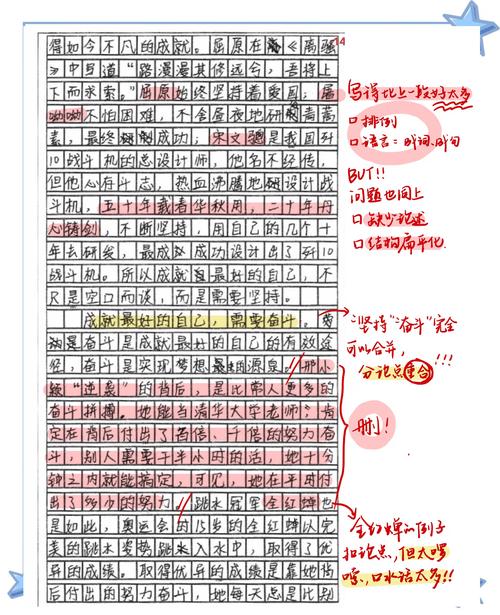 得如今不凡的成就。屈原在《离骚
》中写道“路漫漫其修远兮，吾将上
下而求索。”屈原始终坚持着爱国；屠
呦呦不怕困难，不舍昼夜地研制青蒿
素，最终研制成功；宋文骢是我国歼
10战斗机的总设计师，他名不经传，
但他心存斗志，热血沸腾地研设计战
斗机，五十年载着华秋用，二十年丹
心铸剑，不断坚持，用自己的几个十
年去研发，最成功设计出了歼10
战斗机。所以成就最好的自己，不
只是空口而谈，而是需要坚持。
成就最好的自己，需要奋斗。
是奋斗是成就最好的自己的有效途
径，奋斗是实现梦想最的源泉。那小
“逆袭”的背后，是比常人更多的
奋斗拼搏。她能当清华大学老师，肯
定在背后付出了百倍、千倍的努力奋
斗，别人需要干半小时的活，她十分
钟之内就能搞定，可见，她在平时付
出了多少的努力。跳水冠军全红婵也
是如此，奥运会的15岁的全红婵以完
美的跳水姿势跳水入水中，取得了优
异的成绩。取得优异的成绩是靠她背
后付出的努力奋斗，她每天总是比别
14
写得比上一段好太多
口排例
口语言：成词、成句
BUT!!
问题也同上
口缺少论述
口结构扁平化
“坚持”“奋斗”完全
可以合并，
分论点重合!!!
删!
全红婵的例子
扣论点，但太啰
嗦，口水话太多!!